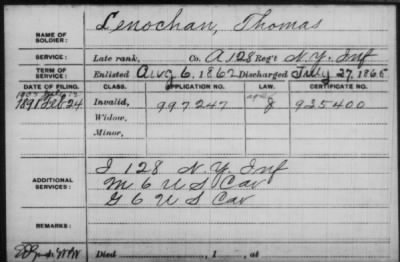 NAME OF SOLDIER: Lenochan, Thomas
SERVICE: Late rank, Co. A 128 Reg't N.Y. Inf
TERM OF SERVICE: Enlisted Aug 6, 1862 Discharged July 27, 1865
DATE OF FILING. CLASS. APPLICATION NO. LAW. CERTIFICATE NO.
1891 Feb 24 Invalid, 997247 935400
Widow,
Minor,
ADDITIONAL SERVICES:
I 128 N.Y. Inf
M 6 U S Cav
G 6 U S Cav
REMARKS:
Died , 1 , at